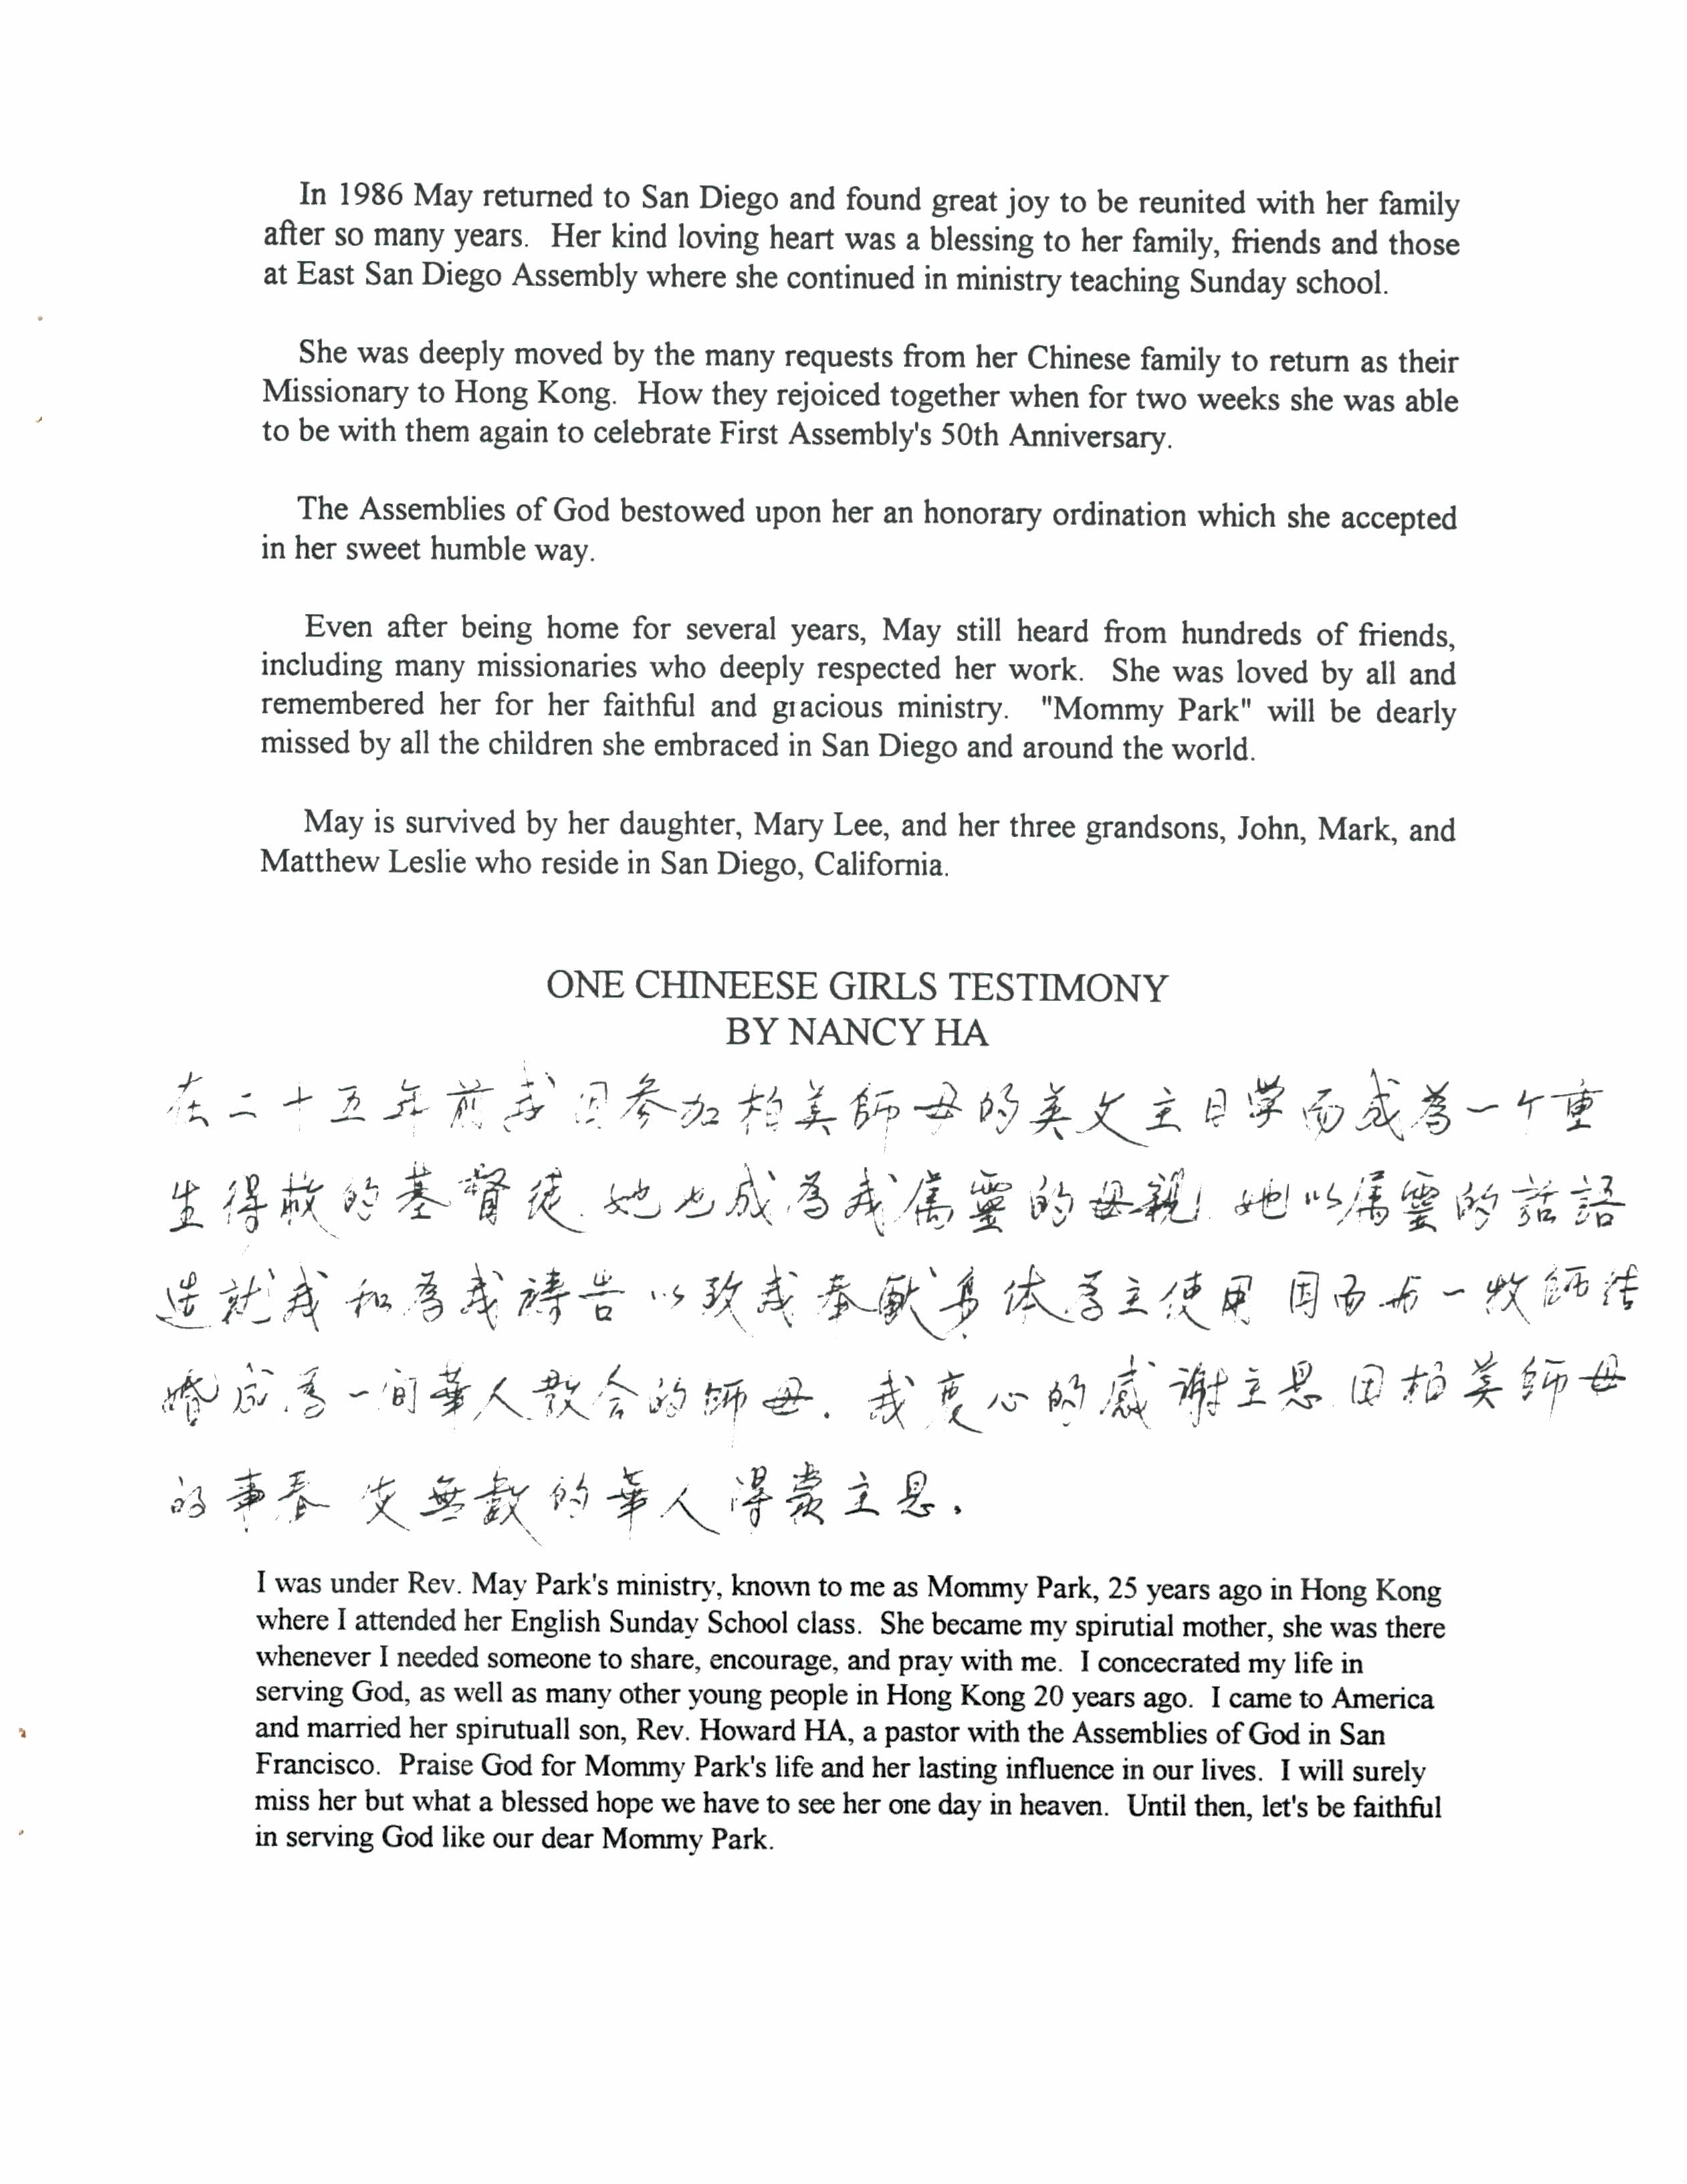 In 1986 May returned to San Diego and found great joy to be reunited with her family
after so many years. Her kind loving heart was a blessing to her family, friends and those
at East San Diego Assembly where she continued in ministry teaching Sunday school.
She was deeply moved by the many requests from her Chinese family to return as their
Missionary to Hong Kong. How they rejoiced together when for two weeks she was able
to be with them again to celebrate First Assembly's 50th Anniversary.
The Assemblies of God bestowed upon her an honorary ordination which she accepted
in her sweet humble way.
Even after being home for several years, May still heard from hundreds of friends,
including many missionaries who deeply respected her work. She was loved by all and
remembered her for her faithful and gracious ministry. "Mommy Park" will be dearly
missed by all the children she embraced in San Diego and around the world.
May is survived by her daughter, Mary Lee, and her three grandsons, John, Mark, and
Matthew Leslie who reside in San Diego, California.
ONE CHINEESE GIRLS TESTIMONY
BY NANCY HA
在二十五年前我因參加柏美師母的英文主日学而成為一个重
生得救的基督徒.她也成為我属靈的母親!她以属靈的話語
造就我和為我禱告以致我奉献身体為主使用因而与一牧師结
婚成為一间華人教会的師母.我衷心的感謝主恩因柏美師母
的事奉使無數的華人得蒙主恩.
I was under Rev. May Park's ministry, known to me as Mommy Park, 25 years ago in Hong Kong
where I attended her English Sunday School class. She became my spirutial mother, she was there
whenever I needed someone to share, encourage, and pray with me. I concecrated my life in
serving God, as well as many other young people in Hong Kong 20 years ago. I came to America
and married her spirutuall son, Rev. Howard HA, a pastor with the Assemblies of God in San
Francisco. Praise God for Mommy Park's life and her lasting influence in our lives. I will surely
miss her but what a blessed hope we have to see her one day in heaven. Until then, let's be faithful
in serving God like our dear Mommy Park.